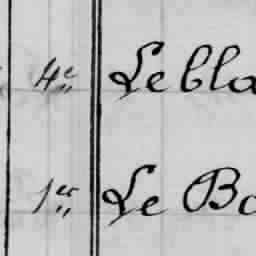 4e Lebla
1er Le Bo